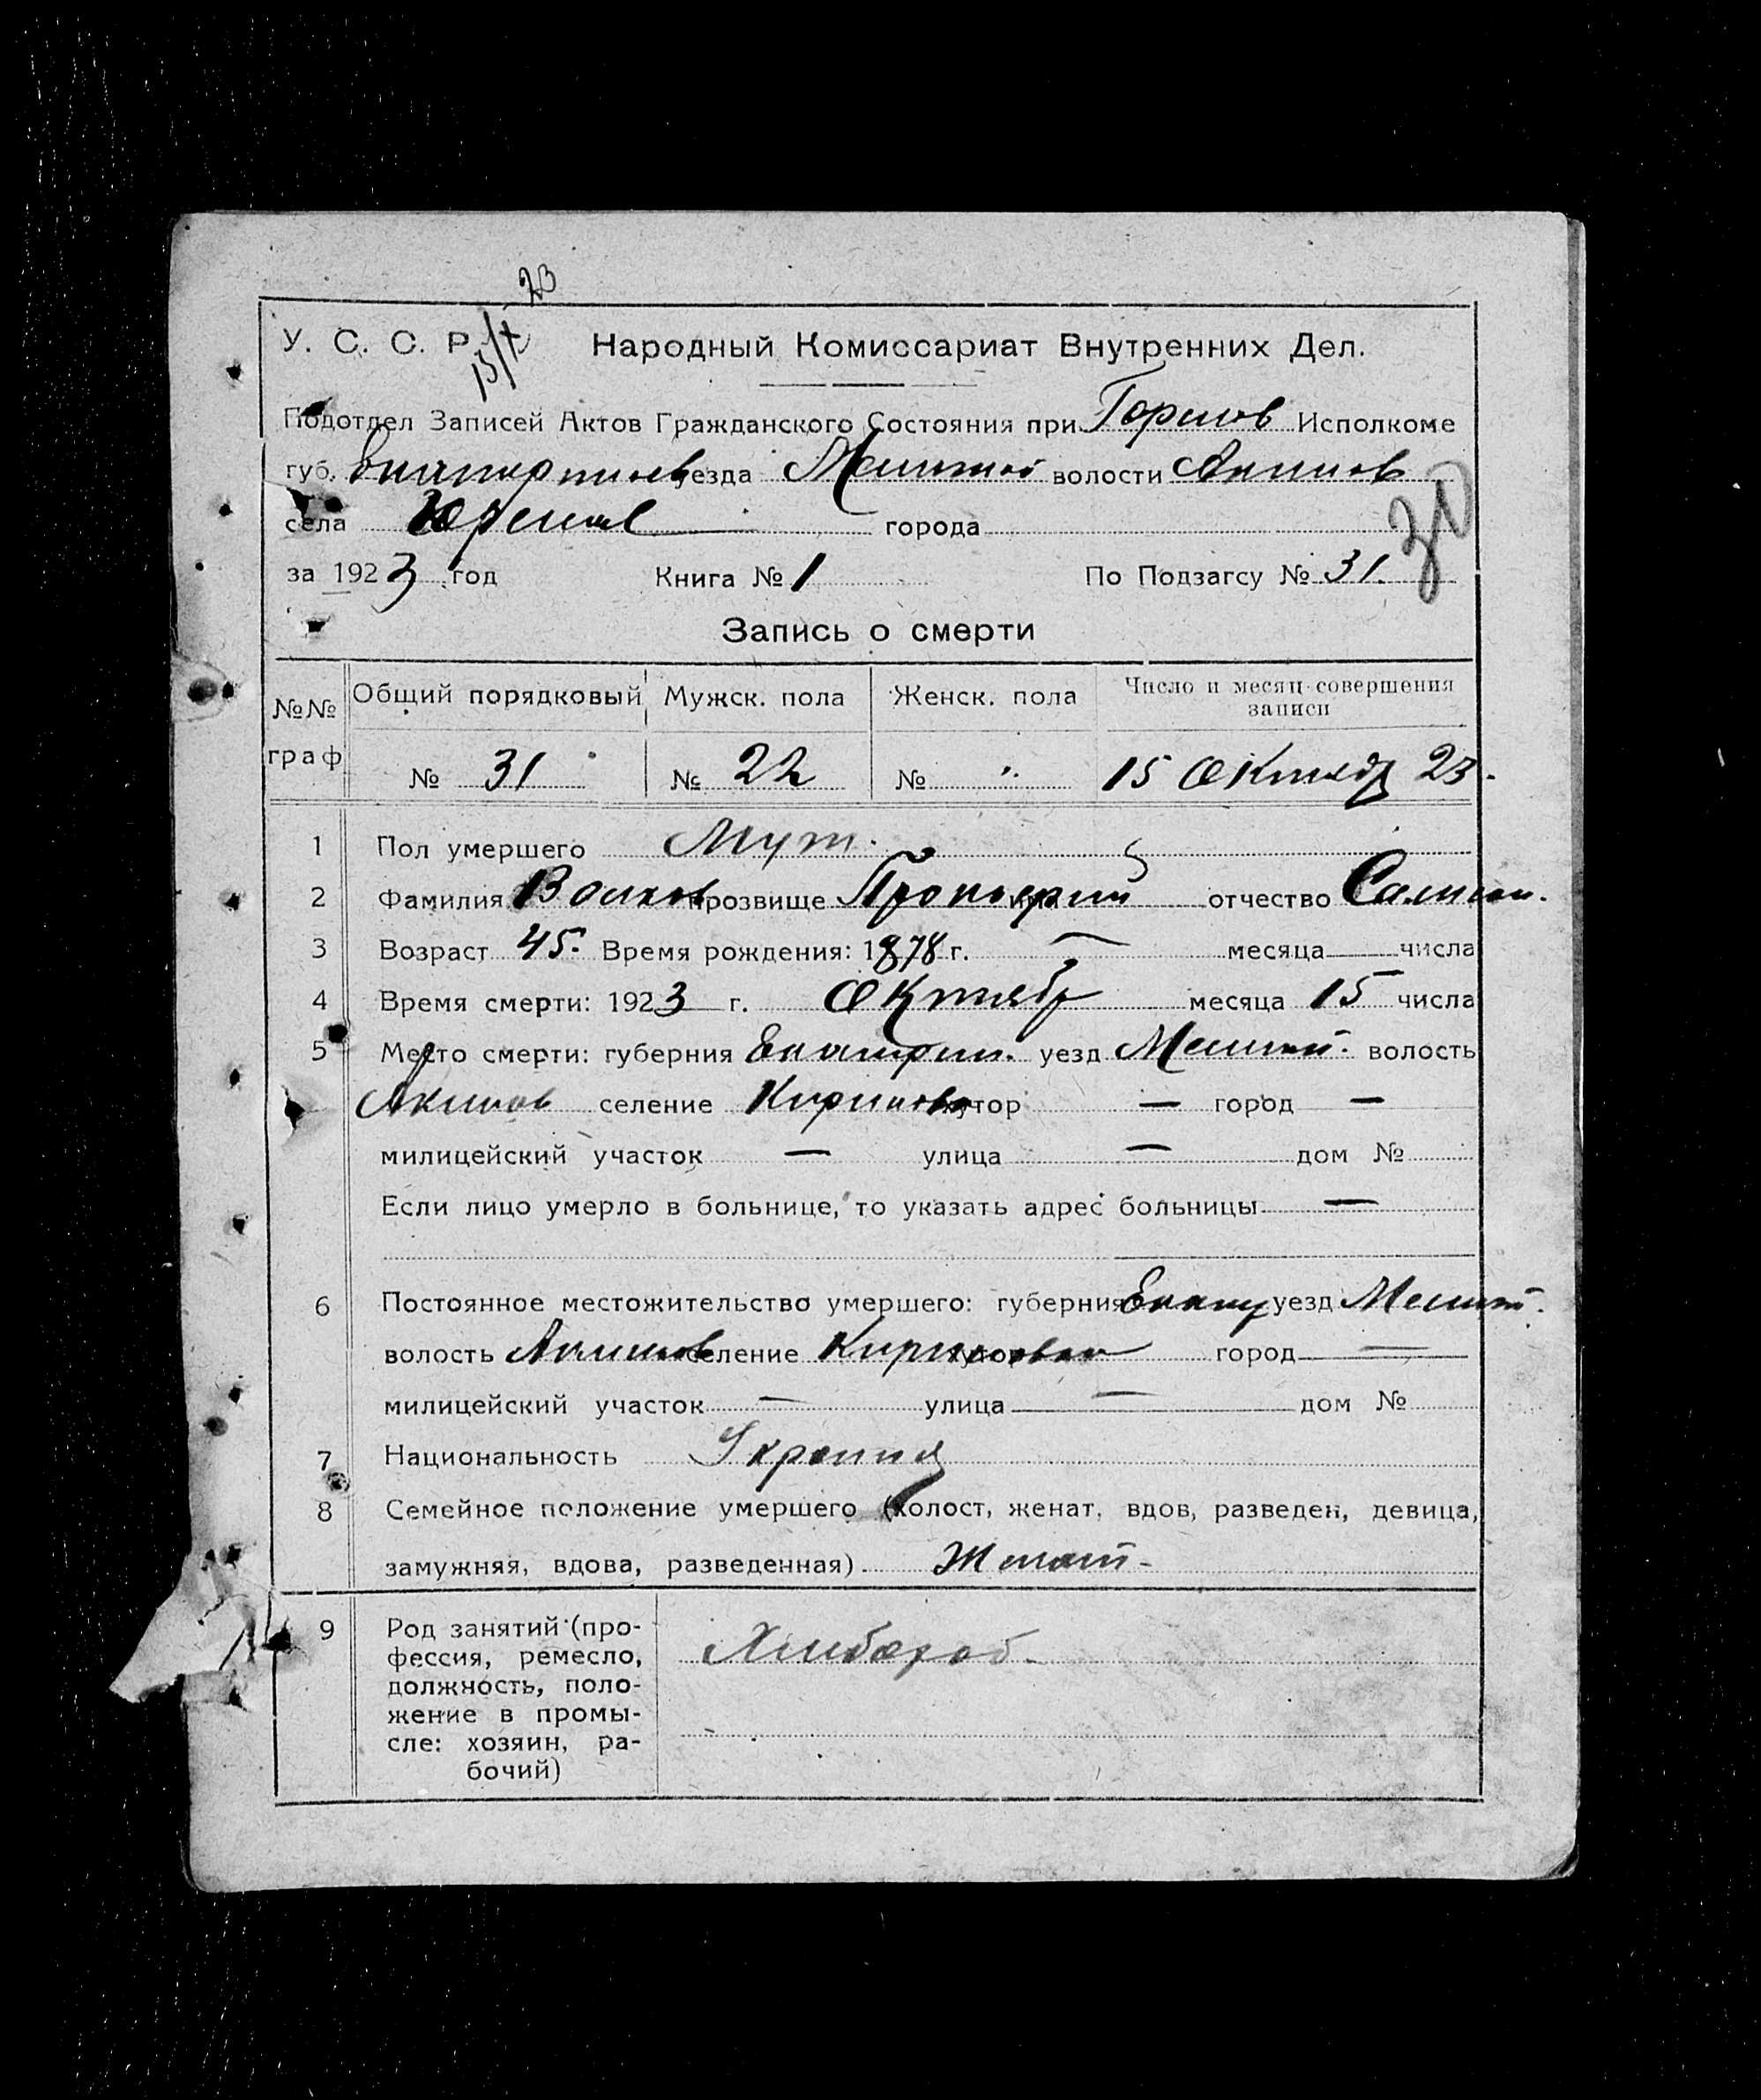 15/X 23
У. С. С. Р. Народный Комиссариат Внутренних Дел.
Подотдел Записей Актов Гражданского Состояния при Исполкоме
губ. уезда Мелитоп волости Акимов
села города
за 1923 год Книга № 1 По Подзагсу № 31.
30
Запись о смерти
№№ граф Общий порядковый Мужск. пола Женск. пола Число и месяц совершения записи
№ 31 № 22 № " 15 Октябр 23.
1 Пол умершего Муж.
2 Фамилия Волков прозвище имя Прокофий отчество
3 Возраст 45. Время рождения: 1878 г. — месяца числа
4 Время смерти: 1923 г. Октябр месяца 15 числа
5 Место смерти: губерния Екатерин. уезд Мелитоп. волость
Акимов селение Кирилловка хутор — город —
милицейский участок — улица — дом №
Если лицо умерло в больнице, то указать адрес больницы —
6 Постоянное местожительство умершего: губерния Екатер уезд Мелит.
волость Акимов селение Кирилловка хутор город —
милицейский участок — улица — дом №
7 Национальность Украинец
8 Семейное положение умершего (холост, женат, вдов, разведен, девица,
замужняя, вдова, разведенная) Женат.
9 Род занятий (про-
фессия, ремесло,
должность, поло-
жение в промы-
сле: хозяин, ра-
бочий)
Хлебороб.